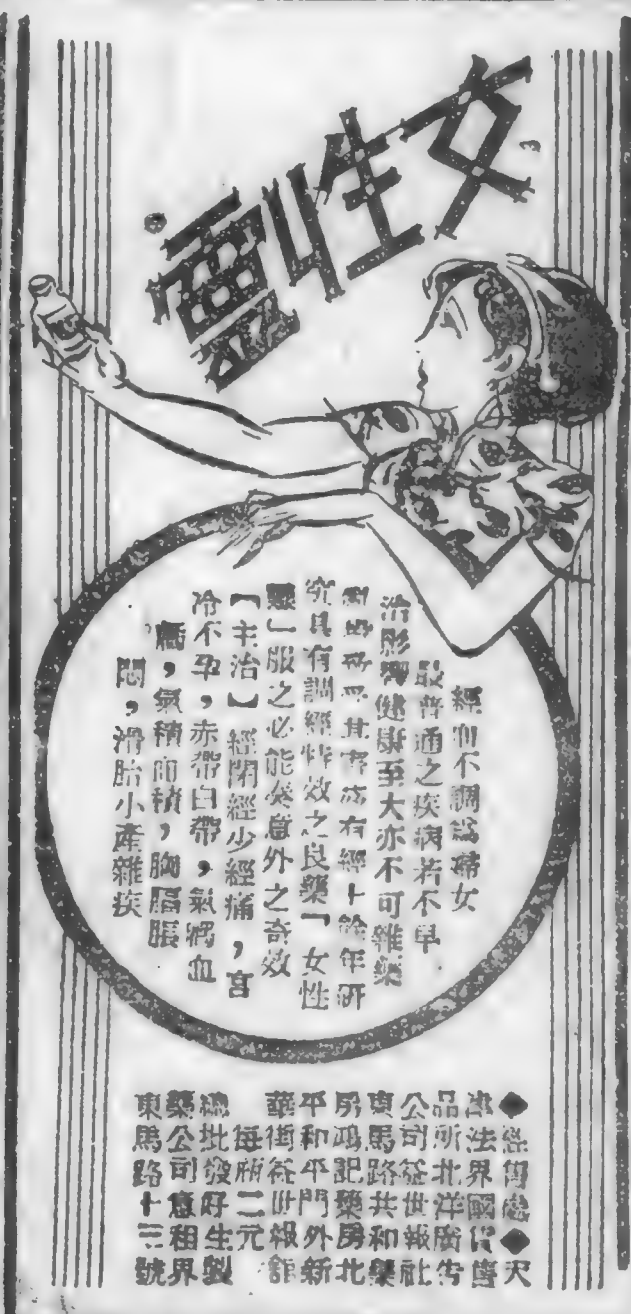 女性靈
經血不調為婦女
最普通之疾病若不早
治影響健康至大亦不可雜藥
有經十餘年研
究具有調經特效之良藥「女性
靈」服之必能奏意外之奇效
【主治】經閉經少經痛，宮
冷不孕，赤帶白帶，氣滯血
瘀，氣積血積，胸膈脹
悶，滑胎小產雜疾
◆經售處◆天
津法界國貨售
品所北洋廣告
公司益世報社
東馬路共和藥
房鴻記藥房北
平和平門外新
華街益世報館
每瓶二元
總批發好生製
藥公司意租界
東馬路十三號